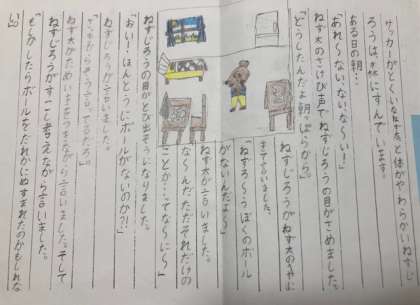 サッカーがとくいなねず太と体がやわらかいねずじ
ろうは、森にすんでいます。
ある日の朝…
「あれ〜ない、ない、な〜い!」
ねず太のさけび声でねずじろうの目がさめました。
「どうしたんだよ朝っぱらから。」
ねずじろうがねず太の
きて言いました。
「ねずろ〜うぼくのボール
がないんだよ〜」
ねず太が言いました。
な〜んだただそれだけの
ことか…ってな〜に〜」
ねずじろうの目がとび出そうになりました。
「おい!ほんとうにボールがないのか?!」
ねずじろうが言いました。
「さっきからそう言ってるだろ。」
ねず太がためいきをつきながら言いました。そして
ねずじろうがすこし考えながら言いました。
「もしかしたらボールをだれかにぬすまれたのかもしれな
い。